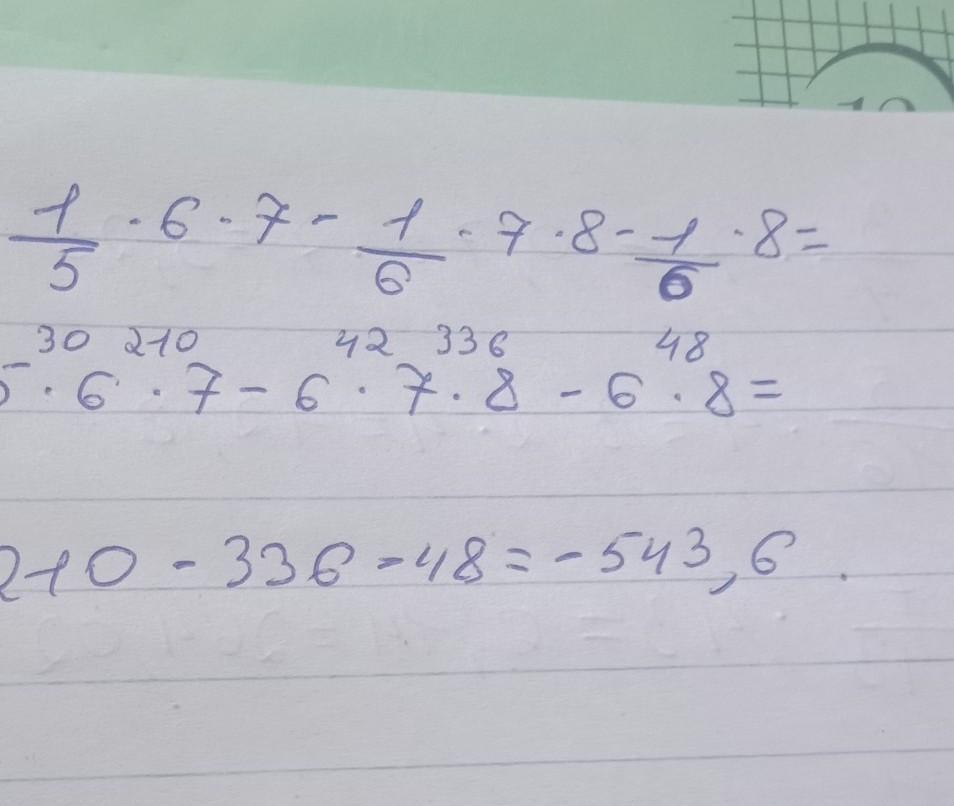 1/5 · 6 · 7 - 1/6 · 7 · 8 - 1/6 · 8 =
30 210 42 336 48
5 · 6 · 7 - 6 · 7 · 8 - 6 · 8 =
210 - 336 - 48 = - 543,6 .